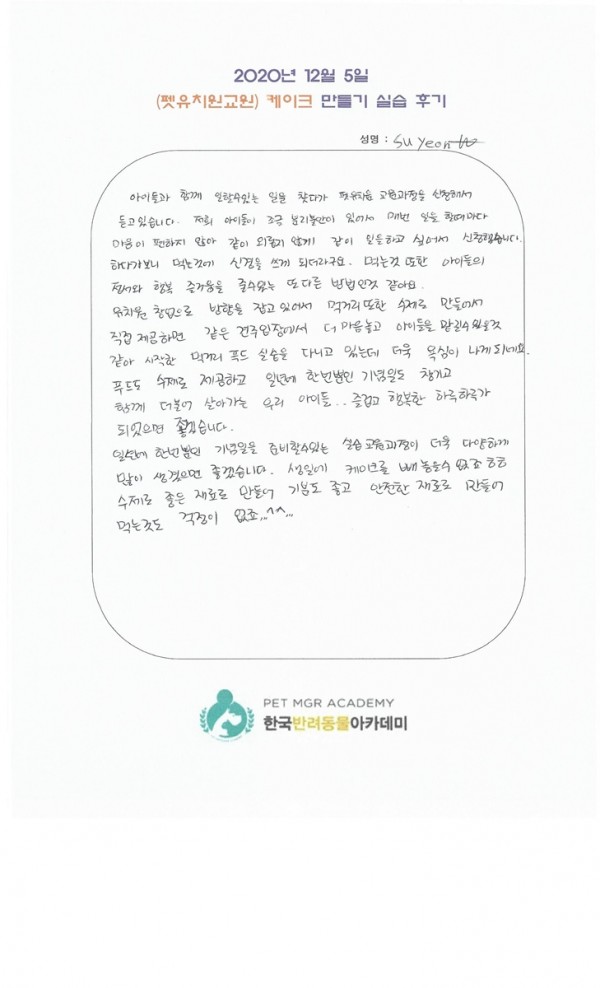 2020년 12월 5일
(펫유치원교원) 케이크 만들기 실습 후기
성명 : Su yeon
아이들과 함께 일할수있는 일을 찾다가 펫유치원 교원과정을 신청해서
듣고있습니다. 저희 아이들이 조금 분리불안이 있어서 매번 일을 할때마다
마음이 편하지 않아 같이 외롭지 않게 같이 일을하고 싶어서 신청했습니다.
하다가보니 먹는것에 신경을 쓰게 되더라구요. 먹는것 또한 아이들의
정서와 행복 즐거움을 줄수있는 또 다른 방법인것 같아요.
유치원 창업으로 방향을 잡고 있어서 먹거리 또한 수제로 만들어서
직접 제공하면 같은 견주입장에서 더 마음놓고 아이들을 맡길수있을것
같아 시작한 먹거리 푸드 실습을 다니고 있는데 더욱 욕심이 나게 되네요.
푸드도 수제로 제공하고 일년에 한번뿐인 기념일도 챙기고
함께 더불어 살아가는 우리 아이들.. 즐겁고 행복한 하루하루가
되었으면 좋겠습니다.
일년에 한번뿐인 기념일을 준비할수있는 실습 교육과정이 더욱 다양하게
많이 생겼으면 좋겠습니다. 생일에 케이크를 빼 놓을수 없죠 ㅎㅎ
수제로 좋은 재료로 만들어 기분도 좋고 안전한 재료로 만들어
먹는것도 걱정이 없죠...^^...
PET MGR ACADEMY
한국반려동물아카데미